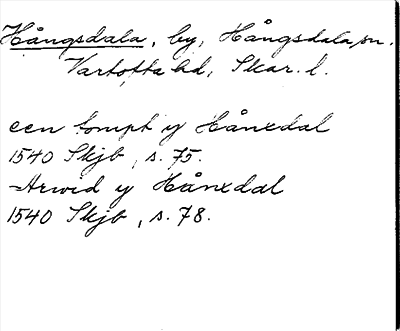 Hångsdala, by, Hångsdala sn.
Vartofta hd, Skar. l.
een tompt y Hånxdal
1540 Skjb, s. 75.
Arwid y Hånxdal
1540 Skjb, s. 78.